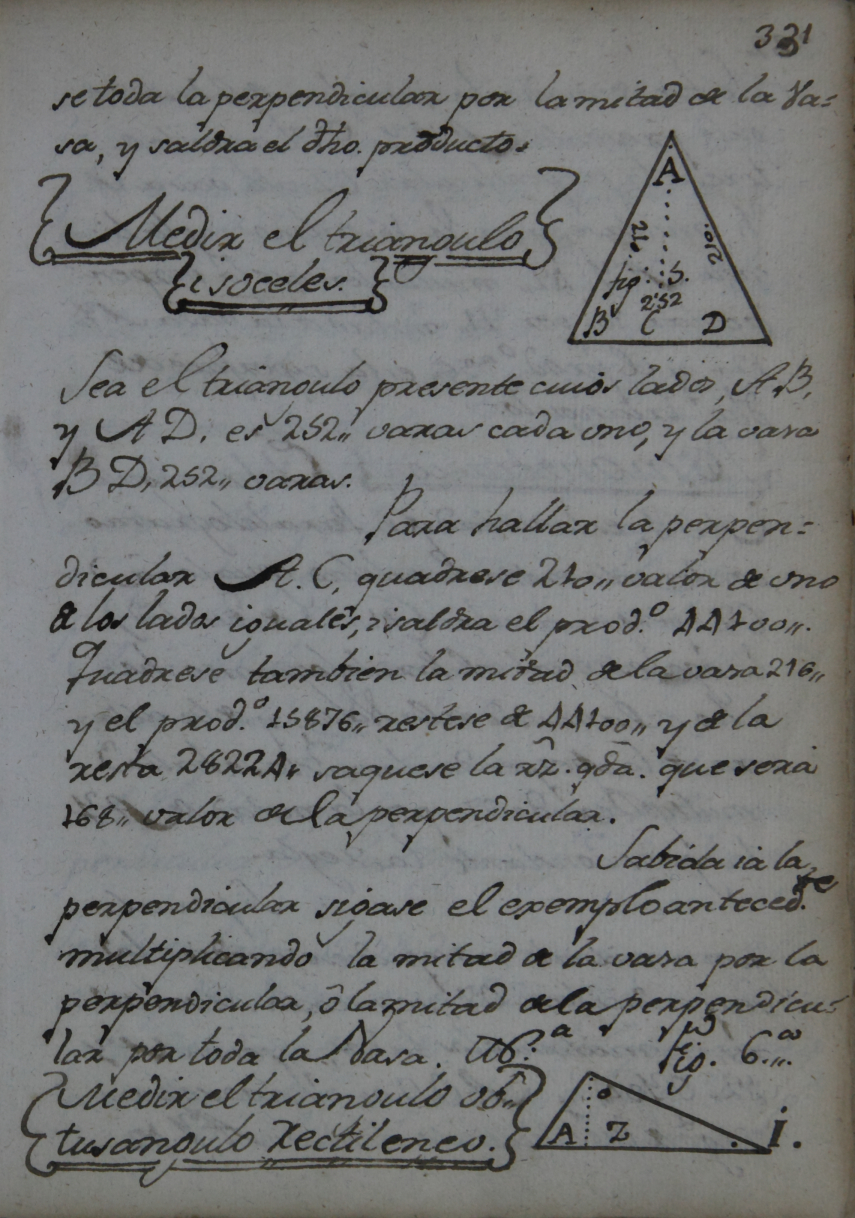 331
se toda la perpendicular por la mitad de la Va=
sa, y saldra el dho. producto.
Medir el triangulo
isoceles.
A
210.
210.
fig. 5.
252
B C D
Sea el triangulo presente cuios lados, AB,
y AD, es 252,, varas cada vno, y la vasa
BD, 252,, varas.
Para hallar la perpen=
dicular A. C, quadrese 210,, valor de vno
de los lados iguales, i saldra el prod.º 44100,,.
Quadrese tambien la mitad de la vasa 216,,
y el prod.º 15876,, restese de 44100,, y de la
resta 28224,, saquese la rz. qda. que será
168,, valor de la perpendicular.
Sabida ia la
perpendicular sigase el exemplo anteced.te
multiplicando la mitad de la vasa por la
perpendicular, ô la mitad de la perpendicu=
lar por toda la Vasa.
fig. 6.,,ª
Medir el triangulo ob=
tusangulo Rectileneo.
A Z i.